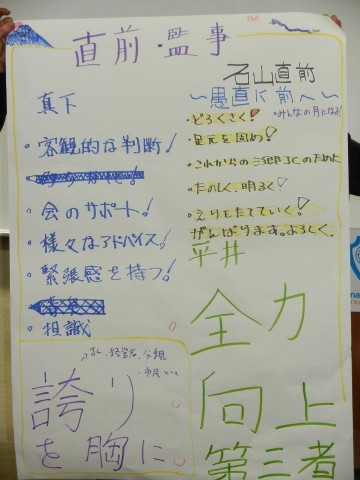 直前・監事
真下
・客観的な判断!
・会のサポート!
・様々なアドバイス!
・緊張感を持つ!
・担識
誇り
を胸に。
石山直前
〜愚直に前へ〜
・どろくさく!
・みんなの月になる!
・足元を固め!
・これからの三郷JCのために
・たのしく、明るく
・えりをたてていく!
がんばります。よろしく。
平井
全力
向上
第三者